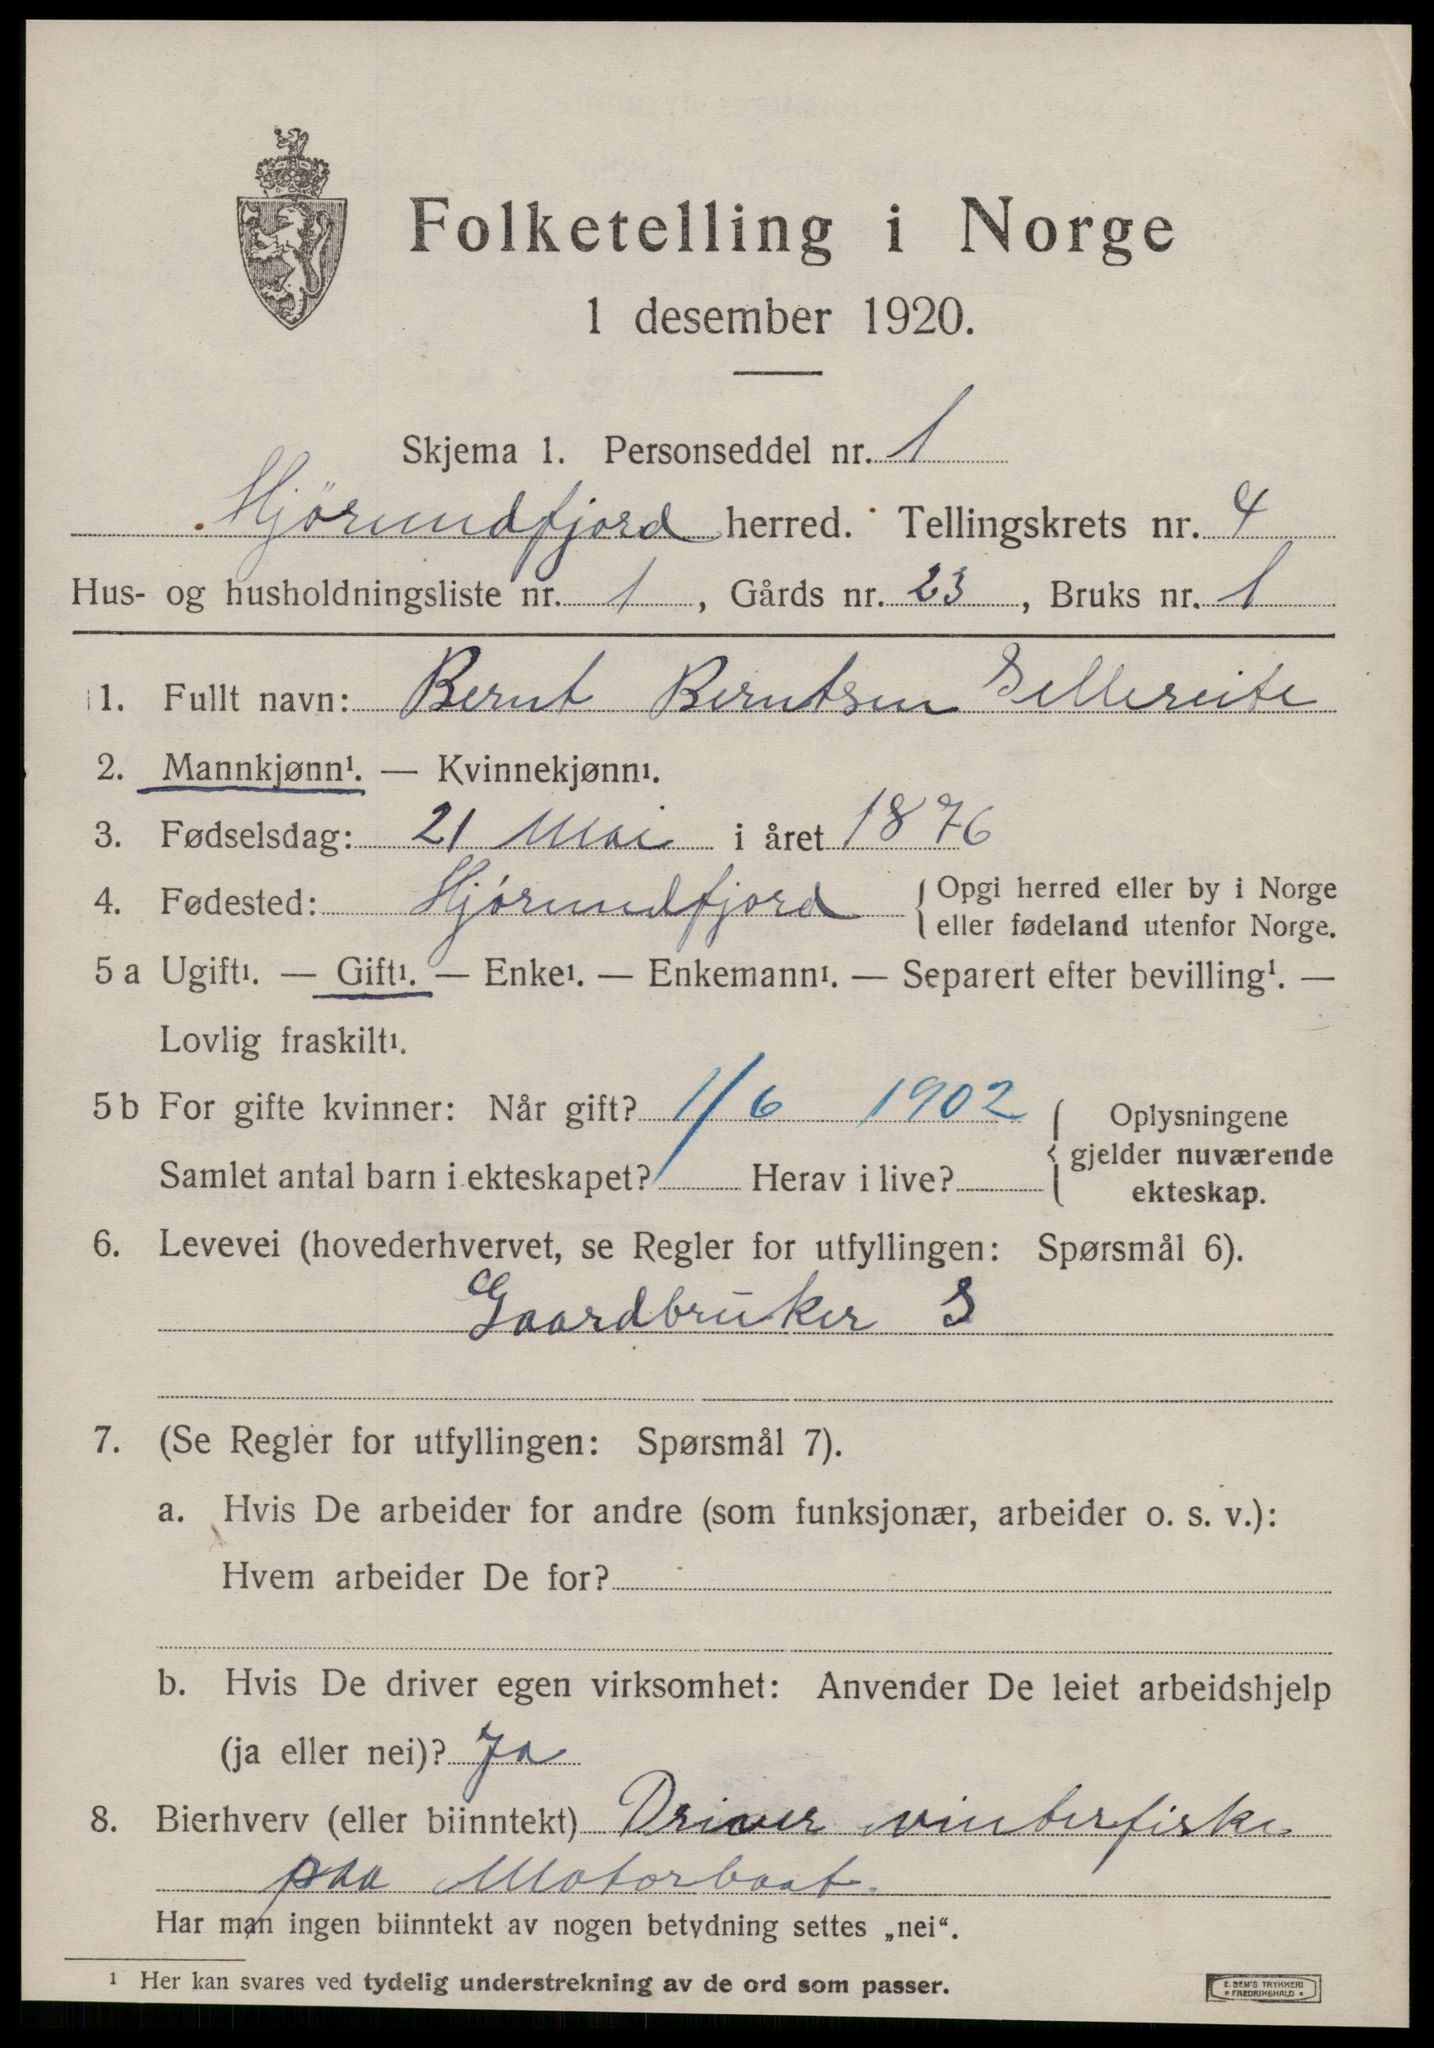 Folketelling i Norge
1 desember 1920.
Skjema 1. Personseddel nr. 1
Hjörundfjord herred. Tellingskrets nr. 4
Hus- og husholdningsliste nr. 1, Gårds nr. 23, Bruks nr. 1
1. Fullt navn: Bernt Berntsen Sellereite
2. Mannkjønn¹. — Kvinnekjønn¹.
3. Fødselsdag: 21 Mai i året 1876
4. Fødested: Hjörundfjord { Opgi herred eller by i Norge
eller fødeland utenfor Norge.
5 a Ugift¹. — Gift¹. — Enke¹. — Enkemann¹. — Separert efter bevilling¹. —
Lovlig fraskilt¹.
5 b For gifte kvinner: Når gift? 1/6 1902 { Oplysningene
gjelder nuværende
Samlet antal barn i ekteskapet? Herav i live? ekteskap.
6. Levevei (hovederhvervet, se Regler for utfyllingen: Spørsmål 6).
Gaardbruker S
7. (Se Regler for utfyllingen: Spørsmål 7).
a. Hvis De arbeider for andre (som funksjonær, arbeider o. s. v.):
Hvem arbeider De for?
b. Hvis De driver egen virksomhet: Anvender De leiet arbeidshjelp
(ja eller nei)? Ja
8. Bierhverv (eller biinntekt) Driver vinterfiske
paa Motorbaat.
Har man ingen biinntekt av nogen betydning settes „nei“.
¹ Her kan svares ved tydelig understrekning av de ord som passer.
E. SEM'S TRYKKERI
FREDRIKSHALD